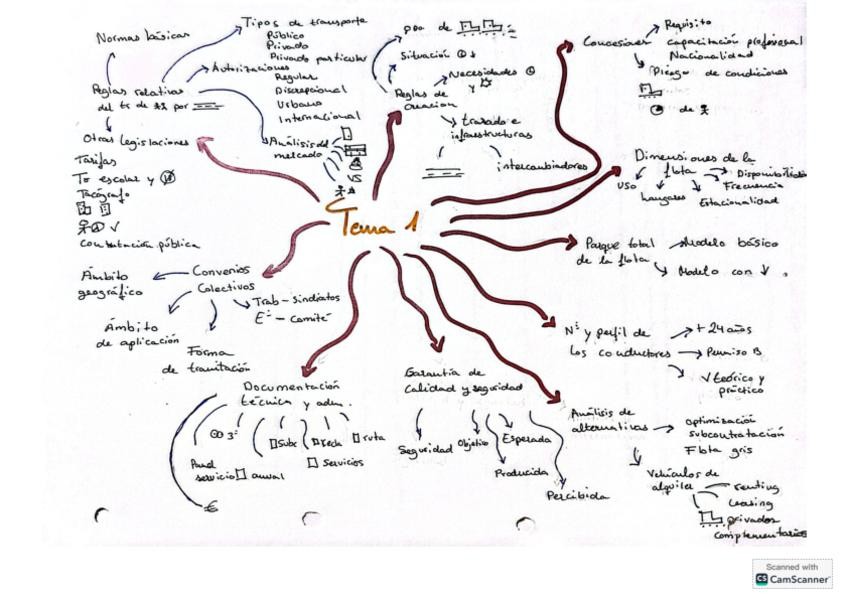 Tema 1
Normas básicas
Reglas relativas
del ts de por
Otras legislaciones
Tarifas
Te escolar y
Tacógrafo
Contratación pública
Tipos de transporte
Público
Privado
Privado particular
Autorizaciones
Regular
Discrecional
Urbano
Internacional
Análisis del
mercado
VS
Reglas de
creación
pda de
Situación
Necesidades
y
trazado e
infraestructuras
intercambiadores
Concesiones
Requisito
capacitación profesional
Nacionalidad
Pliego de condiciones
de
Dimensiones de la
flota
Disponibilidad
Frecuencia
Estacionalidad
hangares
uso
Parque total
de la flota
Modelo básico
Modelo con
Nº y perfil de
los conductores
+ 24 años
Permiso B
teórico y
práctico
Análisis de
alternativas
Optimización
Subcontratación
Flota gris
Vehículos de
alquiler
renting
leasing
privados
complementarios
Garantía de
Calidad y seguridad
Seguridad
Objetivo
Esperada
Producida
Percibida
Documentación
técnica y adm.
Panel
servicio
anual
Subc
Recla
ruta
Servicios
€
Convenios
Colectivos
Ámbito
geográfico
Ámbito
de aplicación
Forma
de tramitación
Trab - Sindicatos
Eª - Comité
Scanned with
CS CamScanner